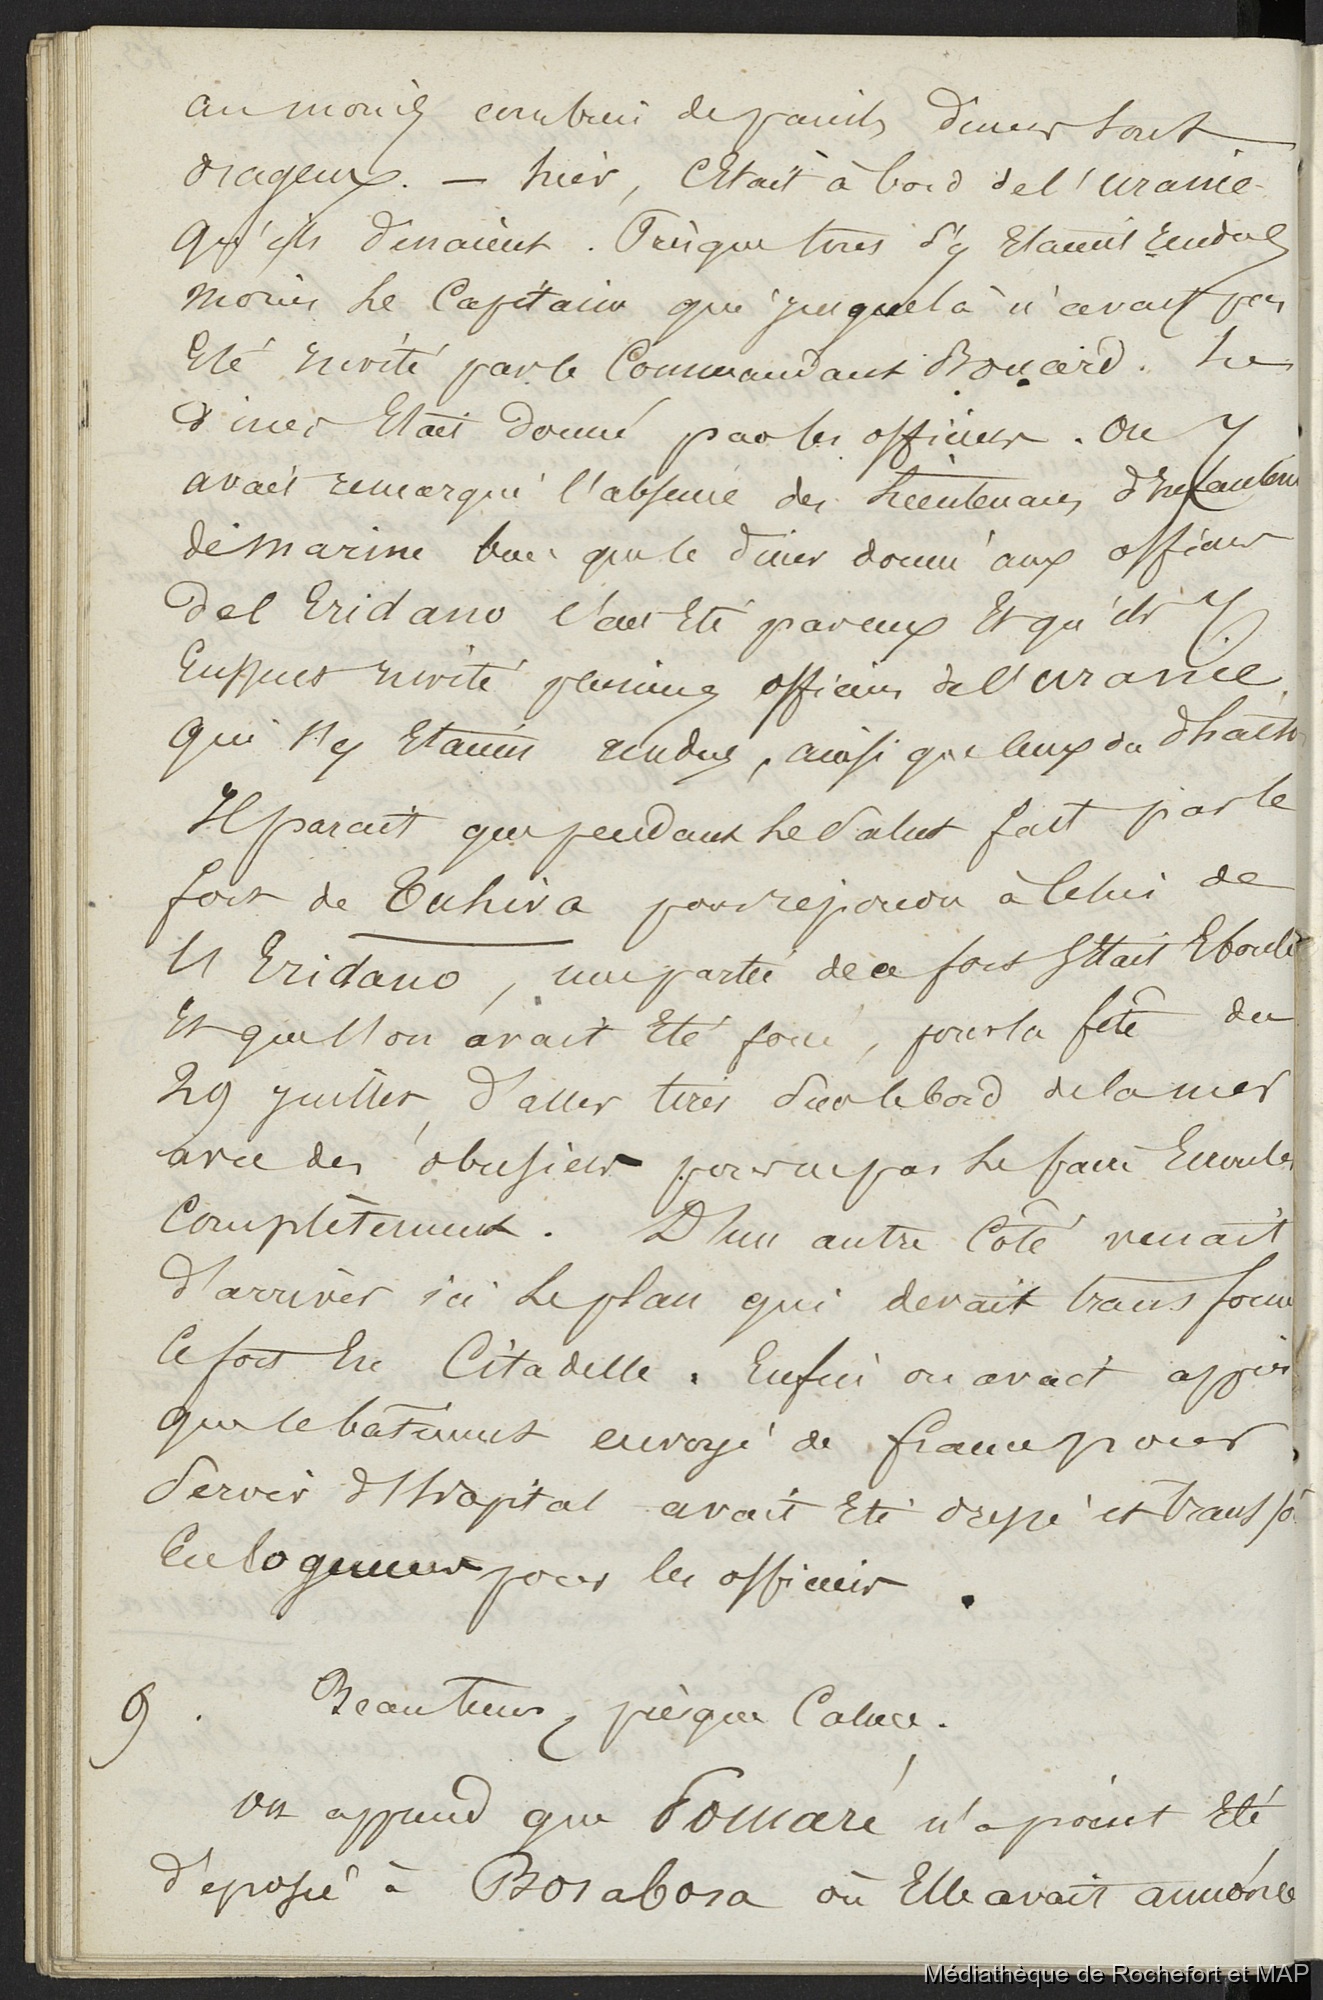 au moins combien de pareils diners sont
orageux. — hier, C'Etait à bord de l'uranie
qu'ils dinaient. Presque tous s'y Etaient rendus
moins Le Capitaine qui jusque là n'avait pas
Eté invité par le Commandant Bonard. Le
diner Etait donné par les officiers. On y
avait remarqué l'absence des Lieutenans d'Infanterie
de marine bien que le diner donné aux officiers
de l'Eridano l'ait Eté par eux Et qu'ils y
Eussent invité plusieurs officiers de l'uranie
qui s'y Etaient rendus, ainsi que ceux du Phaëton
Il parait que pendant Le Salut fait par le
fort de Tuhiva pour repondre à Celui de
l'Eridano, une partie de ce fort s'Etait Eboulé
Et que l'on avait Eté forcé, pour la fête du
29 juillet, d'aller tirer sur le bord de la mer
avec des obusiers pour ne pas Le faire Ecrouler
Complètement. D'un autre Côté venait
d'arriver ici Le plan qui devait transformer
Ce fort En Citadelle. Enfin on avait appris
que le batiment envoyé de france pour
Servir d'hopital avait Eté dressé et transfo
En logement pour les officiers.
9. Beau tems, presque Calme.
On apprend que Pomaré n'a point Eté
déposée à Borabora où Elle avait annoncé
Médiathèque de Rochefort et MAP